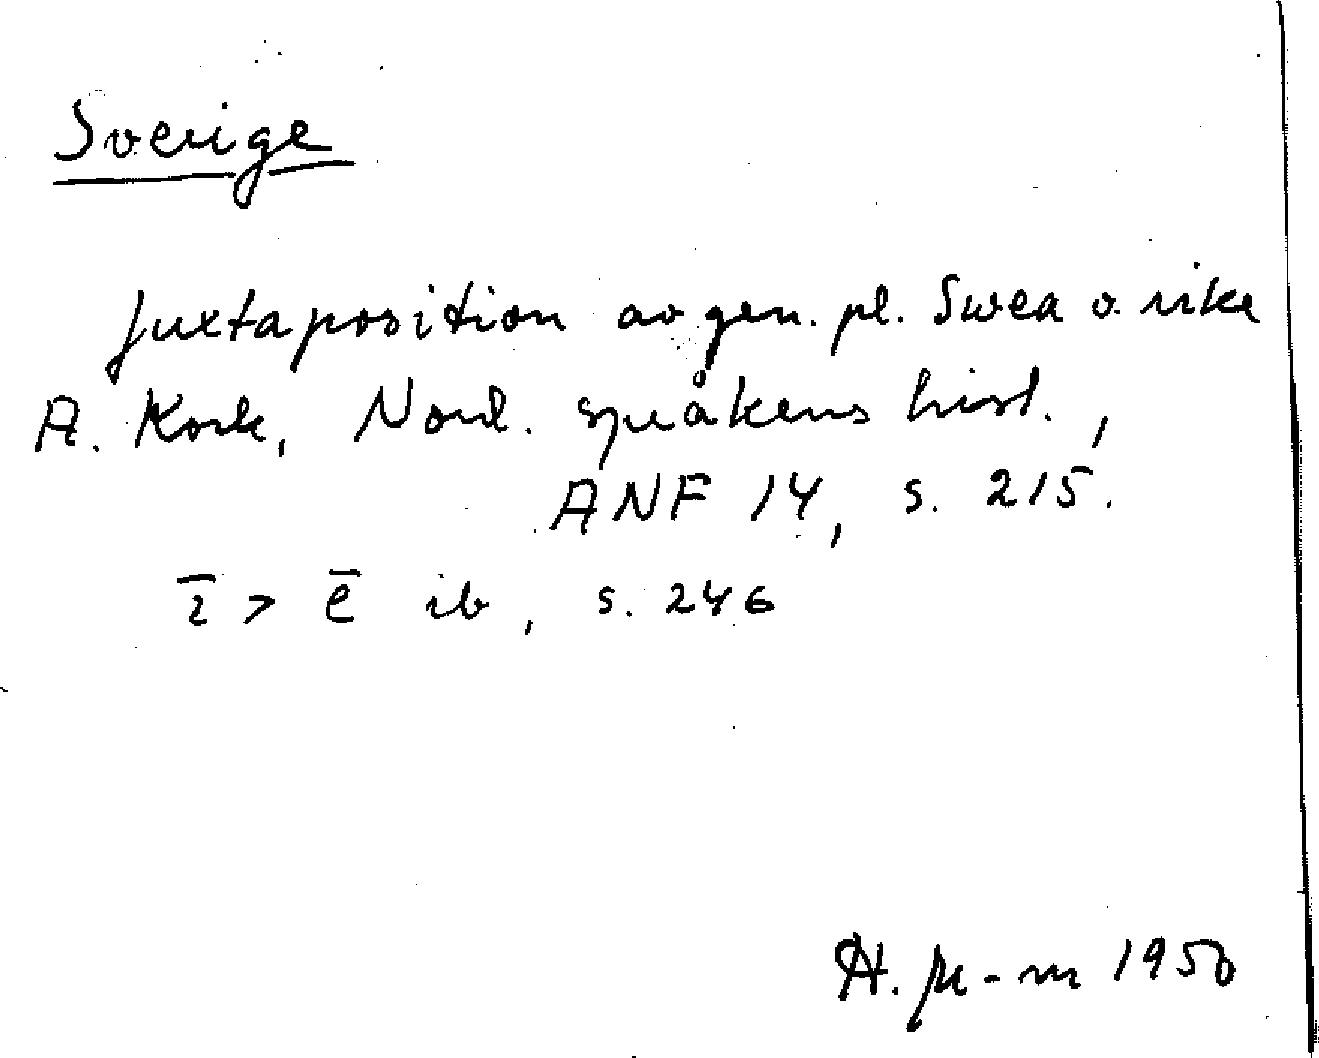 Sverige
Juxtaposition av gen. pl. Swea o. rike
A. Kock, Nord. språkens hist.,
ANF 14, s. 215.
ī > ē ib, s. 246
H. 1950